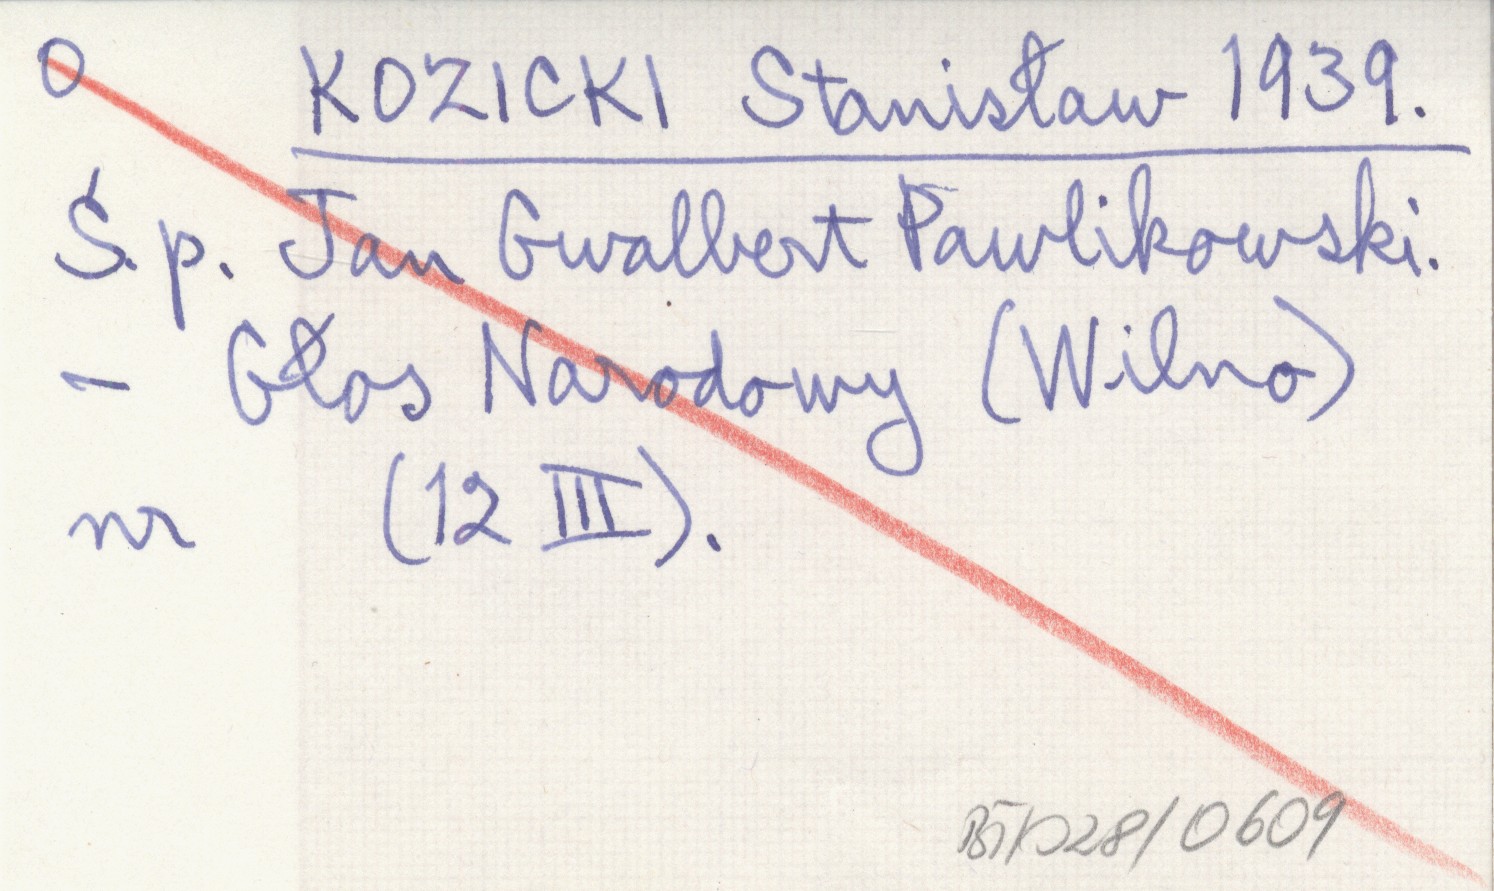 O KOZICKI Stanisław 1939.
Ś.p. Jan Gwalbert Pawlikowski.
- Głos Narodowy (Wilno)
nr (12 III).
0609